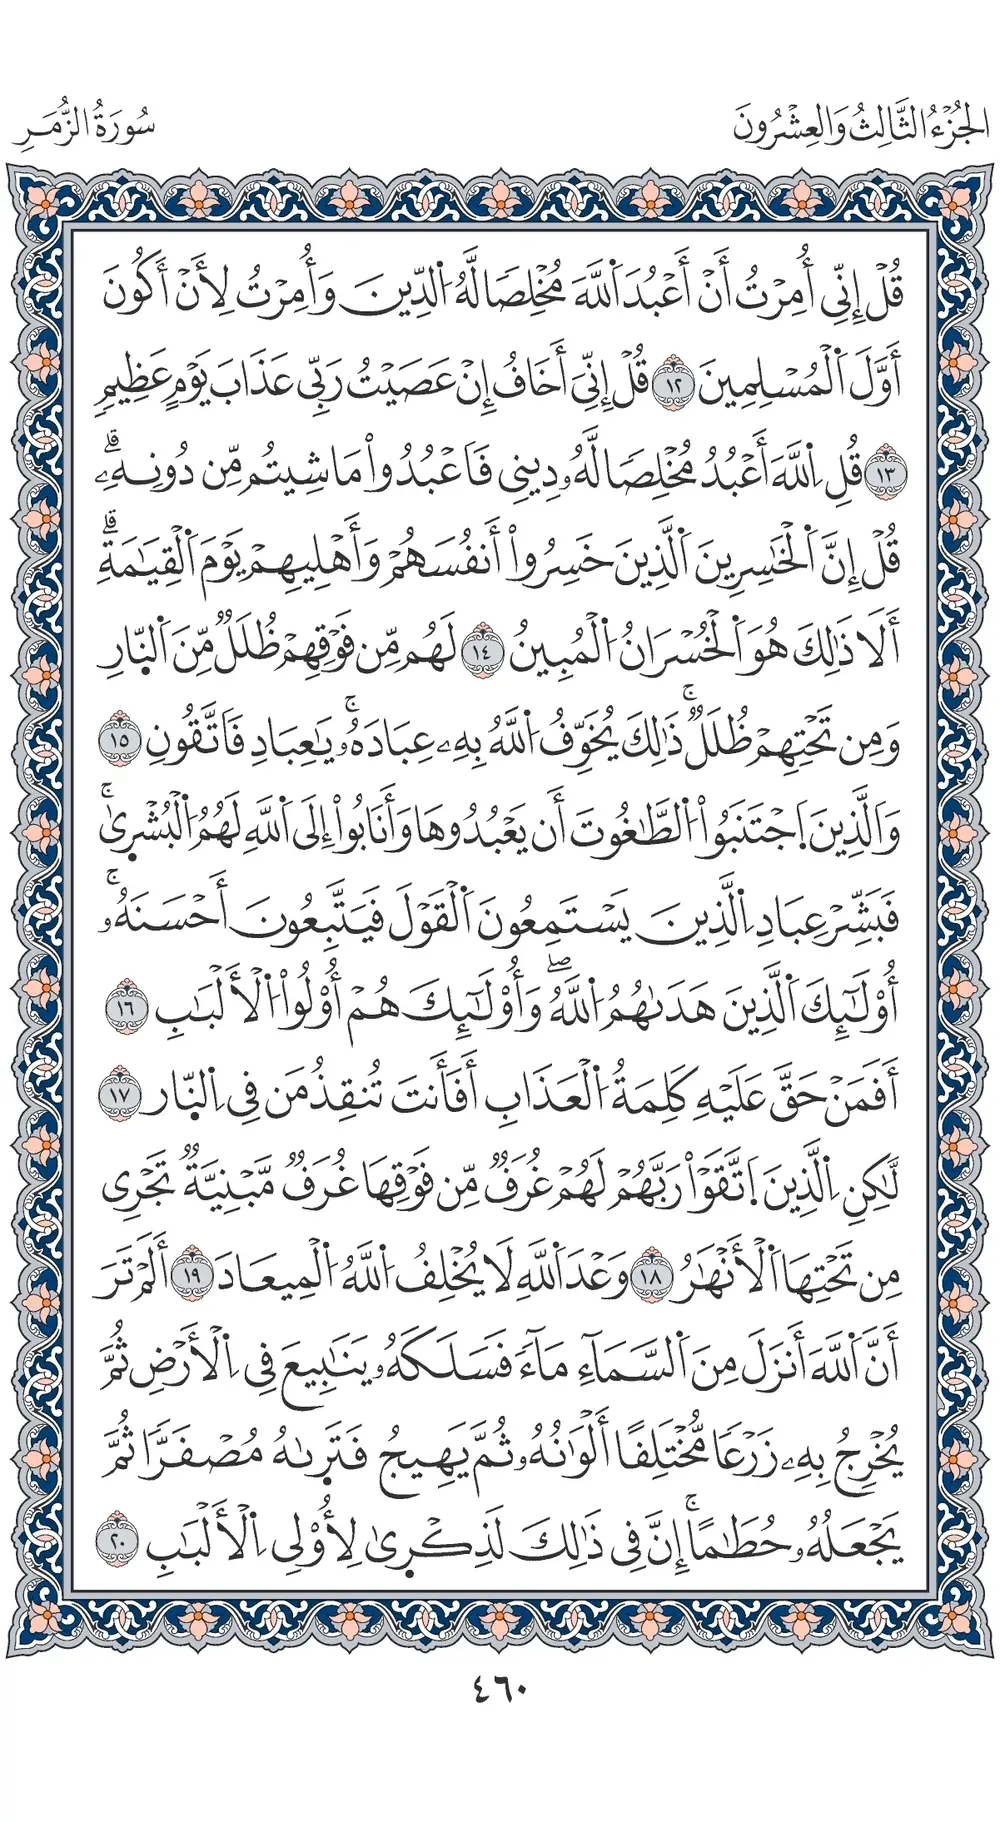 الجُزْءُ الثَّالِثُ وَالعِشْرُونَ
سُورَةُ الزُّمَرِ
قُلْ إِنِّي أُمِرْتُ أَنْ أَعْبُدَ اَللَّهَ مُخْلِصٗا لَّهُ اُلدِّينَ وَأُمِرْتُ لِأَنْ أَكُونَ
أَوَّلَ اَلْمُسْلِمِينَ ١٢ قُلْ إِنِّيَ أَخَافُ إِنْ عَصَيْتُ رَبِّي عَذَابَ يَوْمٍ عَظِيمٖ
١٣ قُلِ اِللَّهَ أَعْبُدُ مُخْلِصٗا لَّهُۥ دِينِي فَاَعْبُدُواْ مَا شِيتُم مِّن دُونِهِۦۗ
قُلْ إِنَّ اَلْخَٰسِرِينَ اَلَّذِينَ خَسِرُواْ أَنفُسَهُمْ وَأَهْلِيهِمْ يَوْمَ اَلْقِيَٰمَةِۗ
أَلَا ذَٰلِكَ هُوَ اَلْخُسْرَانُ اُلْمُبِينُ ١٤ لَهُم مِّن فَوْقِهِمْ ظُلَلٞ مِّنَ اَلنّ۪ارِ
وَمِن تَحْتِهِمْ ظُلَلٞۚ ذَٰلِكَ يُخَوِّفُ اُللَّهُ بِهِۦ عِبَادَهُۥۚ يَٰعِبَادِ فَاَتَّقُونِ ١٥
وَالَّذِينَ اَجْتَنَبُواْ اُلطَّٰغُوتَ أَن يَعْبُدُوهَا وَأَنَابُواْ إِلَى اَللَّهِ لَهُمُ اُلْبُشْر۪ىٰۚ
فَبَشِّرْ عِبَادِ اِلَّذِينَ يَسْتَمِعُونَ اَلْقَوْلَ فَيَتَّبِعُونَ أَحْسَنَهُۥۚ
أُوْلَٰٓئِكَ اَلَّذِينَ هَدَىٰهُمُ اُللَّهُۖ وَأُوْلَٰٓئِكَ هُمْ أُوْلُواْ اُلْأَلْبَٰبِ ١٦
أَفَمَنْ حَقَّ عَلَيْهِ كَلِمَةُ اُلْعَذَابِ أَفَأَنتَ تُنقِذُ مَن فِي اِلنّ۪ارِ ١٧
لَٰكِنِ اِلَّذِينَ اَتَّقَوْاْ رَبَّهُمْ لَهُمْ غُرَفٞ مِّن فَوْقِهَا غُرَفٞ مَّبْنِيَّةٞ تَجْرِي
مِن تَحْتِهَا اَلْأَنْهَٰرُ ١٨ وَعْدَ اَللَّهِ لَا يُخْلِفُ اُللَّهُ اُلْمِيعَادَ ١٩ أَلَمْ تَرَ
أَنَّ اَللَّهَ أَنزَلَ مِنَ اَلسَّمَآءِ مَآءٗ فَسَلَكَهُۥ يَنَٰبِيعَ فِي اِلْأَرْضِ ثُمَّ
يُخْرِجُ بِهِۦ زَرْعٗا مُّخْتَلِفًا أَلْوَٰنُهُۥ ثُمَّ يَهِيجُ فَتَر۪ىٰهُ مُصْفَرّٗا ثُمَّ
يَجْعَلُهُۥ حُطَٰمًاۚ إِنَّ فِي ذَٰلِكَ لَذِكْر۪ىٰ لِأُوْلِي اِلْأَلْبَٰبِ ٢٠
٤٦٠